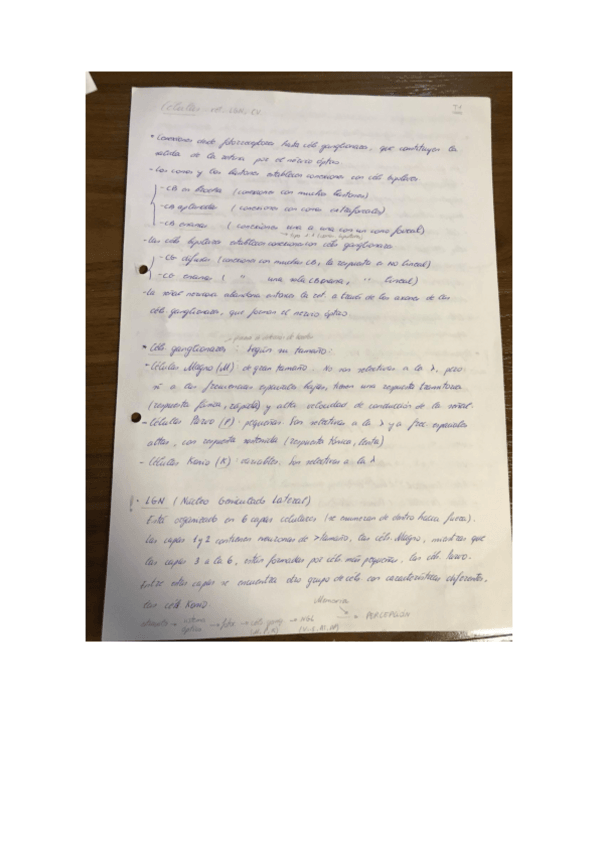 Células
T1
• Conexiones desde fotorreceptores hasta céls ganglionares, que constituyen la
salida de la retina por el nervio óptico.
- Los conos y los bastones establecen conexiones con céls bipolares
- CB en (conexiones con muchos bastones)
- CB aplanada (conexiones con conos extrafoveales)
- CB enana (conexiones una a una con un cono foveal)
- Las céls bipolares establecen conexiones con céls ganglionares
- CG difusa (conexiones con muchas CB, la respuesta es no lineal)
- CG enana ( " una sola CB enana, " lineal)
- La señal nerviosa abandona entonces la ret. a través de los axones de las
céls ganglionares, que forman el nervio óptico.
• Céls ganglionares: según su tamaño:
- Células Magno (M): de gran tamaño. No son selectivas a la λ, pero
sí a las frecuencias espaciales bajas, tienen una respuesta transitoria
(respuesta fásica, rápida) y alta velocidad de conducción de la señal.
- Células Parvo (P): pequeñas. Son selectivas a la λ y a frec espaciales
altas, con respuesta sostenida (respuesta tónica, lenta)
- Células Konio (K): variables. Son selectivas a la λ
! • LGN (Núcleo Geniculado Lateral)
Está organizado en 6 capas celulares (se numeran de dentro hacia fuera).
Las capas 1 y 2 contienen neuronas de > tamaño, las céls Magno, mientras que
las capas 3 a la 6, están formadas por céls más pequeñas, las céls Parvo.
Entre estas capas se encuentra otro grupo de céls con características diferentes,
las céls Konio
Memoria
→ sistema óptico → → céls gang → NGL → PERCEPCIÓN